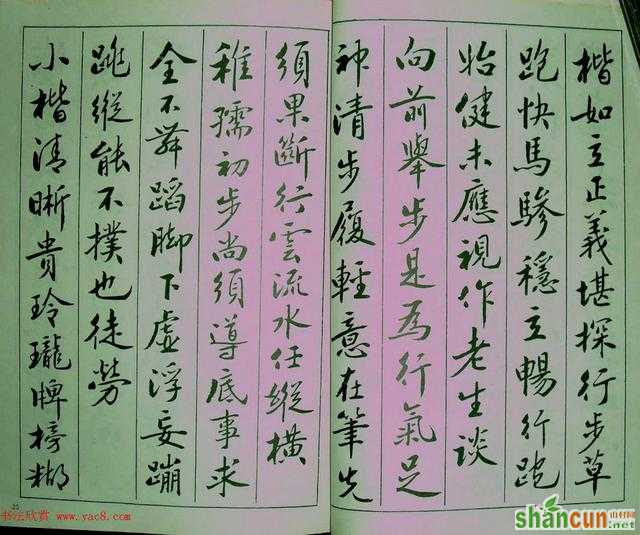 楷如立正義堪探行步草
跑快馬驂穩立暢行跑
始健未應視作老生談
向前舉步是為行氣足
神清步履輕意在筆先
須果斷行雲流水任縱橫
稚孺初步尚須導底事求
全不舞蹈脚下虛浮妄蹦
跳縱能不撲也徒勞
小楷清晰貴玲瓏牌榜糊
书法欣赏 www.yac8.com
shancun